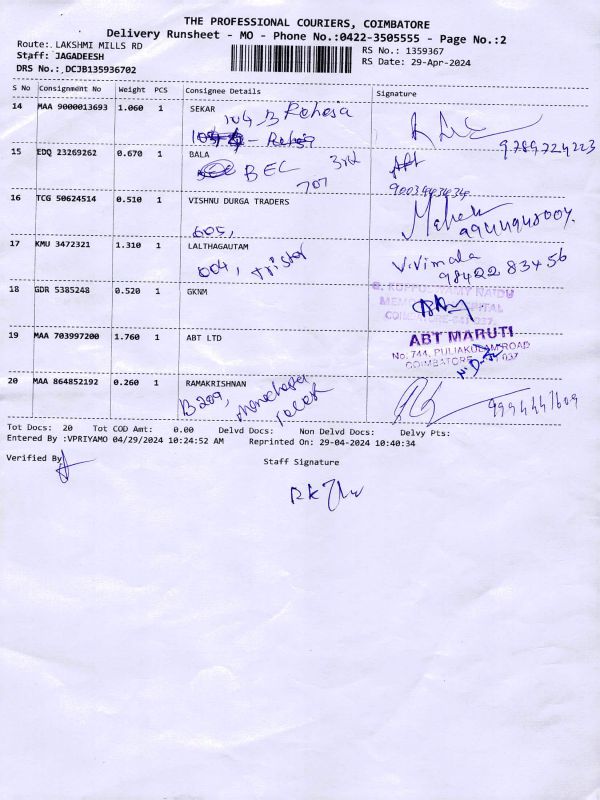 THE PROFESSIONAL COURIERS, COIMBATORE
Delivery Runsheet - MO - Phone No.:0422-3505555 - Page No.:2
Route: LAKSHMI MILLS RD
RS No.: 1359367
Staff: JAGADEESH
RS Date: 29-Apr-2024
DRS No.: DCJB135936702
S No Consignment No Weight PCS Consignee Details Signature
14 MAA 9000013693 1.060 1 SEKAR
104 B Raheja
9789724223
15 EDQ 23269262 0.670 1 BALA
BEL 3rd
707
9003443434
16 TCG 50624514 0.510 1 VISHNU DURGA TRADERS
605,
17 KMU 3472321 1.310 1 LALTHAGAUTAM
004,
V.Vimala
98422 83456
18 GDR 5385248 0.520 1 GKNM
G. KUPPUSWAMY NAIDU
MEMORIAL HOSPITAL
19 MAA 703997200 1.760 1 ABT LTD
ABT MARUTI
No. 744, PULIAKULAM ROAD
COIMBATORE
20 MAA 864852192 0.260 1 RAMAKRISHNAN
B209,
9994447609
Tot Docs: 20 Tot COD Amt: 0.00 Delvd Docs: Non Delvd Docs: Delvy Pts:
Entered By :VPRIYAMO 04/29/2024 10:24:52 AM Reprinted On: 29-04-2024 10:40:34
Verified By
Staff Signature